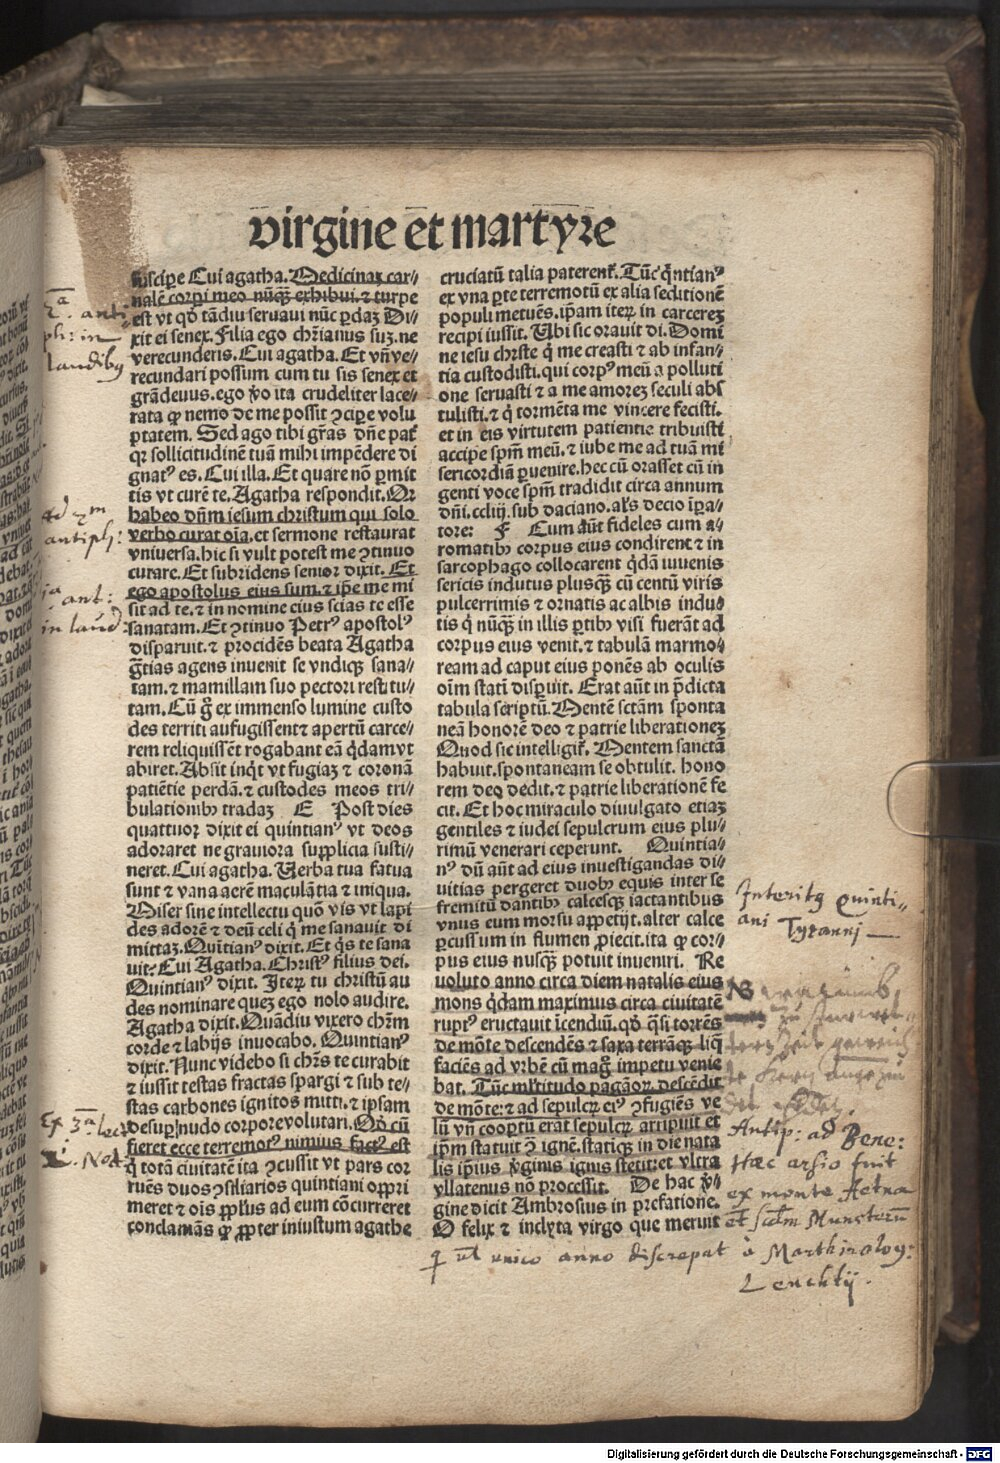 virgine et martyre
suscipe Cui agatha. Medicinaꝫ car⸗
nalē corpi meo nūqꝫ exhibui. ⁊ turpe
est vt qd̓ tādiu seruaui nūc ꝑdaꝫ Di⸗
xit ei senex. Filia ego chr̄ianus suꝫ. ne
verecunderis. Cui agatha. Et vn̄ ve⸗
recundari possum cum tu sis senex et
grādeuus. ego ꝟo ita crudeliter lace⸗
rata ꝙ nemo de me possit ↄcipe volu
ptatem. Sed ago tibi gr̄as dn̄e pat̄
qꝛ sollicitudinē tuā mihi impēdere di
gnatꝰ es. Cui illa. Et quare nō ꝑmit
tis vt curē te. Agatha respondit. Qꝛ
habeo dn̄m iesum christum qui solo
verbo curat oīa. et sermone restaurat
vniuersa. hic si vult potest me ↄtinuo
curare. Et subridens senior dixit. Et
ego apostolus eius sum. ⁊ ip̄e me mi
sit ad te. ⁊ in nomine eius scias te esse
sanatam. Et ↄtinuo Petrꝰ apostolꝰ
disparuit. ⁊ procidēs beata Agatha
gr̄tias agens inuenit se vndiqꝫ sana⸗
tam. ⁊ mamillam suo pectori restitu⸗
tam. Cū g̊ ex immenso lumine custo
des territi aufugissent ⁊ apertū carce⸗
rem reliquissēt rogabant eā q̄dam vt
abiret. Absit inq̄t vt fugiaꝫ ⁊ coronā
patiētie perdā. ⁊ custodes meos tri⸗
bulationibꝫ tradaꝫ E Post dies
quattuor dixit ei quintianꝰ vt deos
adoraret ne grauiora supplicia susti⸗
neret. Cui agatha. Verba tua fatua
sunt ⁊ vana aerē maculātia ⁊ iniqua.
Miser sine intellectu quō vis vt lapi
des adorē ⁊ deū celi q̄ me sanauit di
mittaꝫ. Quītianꝰ dixit. Et q̄s te sana
uit. Cui Agatha. Christꝰ filius dei.
Quintianꝰ dixit. Iteꝝ tu christū au
des nominare queꝫ ego nolo audire.
Agatha dixit. Quādiu vixero chr̄m
corde ⁊ labijs inuocabo. Quintianꝰ
dixit. Nunc videbo si chr̄s te curabit
⁊ iussit testas fractas spargi ⁊ sub te⸗
stas carbones ignitos mitti. ⁊ ipsam
desup̄ nudo corpore volutari. Qd̓ cū
fieret ecce terremotꝰ nimius factꝰ est
q̄ totā ciuitatē ita ↄcussit vt pars cor
ruēs duos ↄsiliarios quintiani oppri
meret ⁊ oīs pplus ad eum cōcurreret
conclamās ꝙ ꝓpter iniustum agathe
cruciatū talia paterent᷑. Tūc q̄ntianꝰ
ex vna ꝑte terremotū ex alia seditionē
populi metuēs. ip̄am iteꝝ in carcereꝫ
recipi iussit. Ubi sic orauit di. Domi
ne iesu chr̄ste q̄ me creasti ⁊ ab infan⸗
tia custodisti. qui corpꝰ meū a polluti
one seruasti ⁊ a me amoreꝫ seculi abs
tulisti. ⁊ q̄ tormēta me vincere fecisti.
et in eis virtutem patientie tribuisti
accipe spm̄ meū. ⁊ iube me ad tuā mi
sericordiā ꝑuenire. hec cū orasset cū in
genti voce spm̄ tradidit circa annum
dn̄i. ccliij. sub daciano. al̓s decio īꝑa⸗
tore: F Cum aūt fideles cum a⸗
romatibꝫ corpus eius condirent ⁊ in
sarcophago collocarent q̄dā iuuenis
sericis indutus plusqꝫ cū centū viris
pulcerrimis ⁊ ornatis ac albis indu⸗
tis q̄ nūqꝫ in illis ꝑtibꝫ visi fuerāt ad
corpus eius venit. ⁊ tabulā marmo⸗
ream ad caput eius ponēs ab oculis
oīm statī disꝑuit. Erat aūt in p̄dicta
tabula scriptū. Mentē sctām sponta
neā honorē deo ⁊ patrie liberationeꝫ
Quod sic intelligit᷑. Mentem sanctā
habuit. spontaneam se obtulit. hono
rem deo dedit. ⁊ patrie liberationē fe
cit. Et hoc miraculo diuulgato etiaꝫ
gentiles ⁊ iudei sepulcrum eius plu⸗
rimū venerari ceperunt. Quintia⸗
nꝰ dū aūt ad eius inuestigandas di⸗
uitias pergeret duobꝫ equis inter se
fremitū dantibꝫ calcesqꝫ iactantibus
vnus eum morsu appetijt. alter calce
ꝑcussum in flumen ꝓiecit. ita ꝙ cor⸗
pus eius nusqꝫ potuit inueniri. Re
uoluto anno circa diem natalis eius
mons q̄dam maximus circa ciuitatē
ruptꝰ eructauit īcendiū. qd̓ q̄si torrēs
de mōte descendēs ⁊ saxa terrāqꝫ liq̄
faciēs ad vrbē cū mag̊ impetu venie
bat. Tūc ml̓titudo paganoꝝ descēdit
de mōte: ⁊ ad sepulcꝝ eiꝰ ↄfugiēs ve
lū vn̄ coopertū erat sepulcꝝ arripuit et
ip̄m statuit ↄ ignē. statiqꝫ in die nata
lis ip̄ius ꝟginis ignis stetit: et vltra
vllatenus nō processit. De hac ꝟi⸗
gine dicit Ambrosius in prefatione.
O felix ⁊ inclyta virgo que meruit
2ᵃ anti
ph: in
laudibꝰ
ad
antiph:
1ᵃ ant:
in laud:
Ex 3ᵃ lec
Not
Interitꝰ Quinti⸗
ani Tyranni
NB
Antip: ad Bene:
Hæc arsio fuit
ex monte Aetna
et Munsterū
vel unico anno discrepat a Marthirolog:
Digitalisierung gefördert durch die Deutsche Forschungsgemeinschaft - DFG